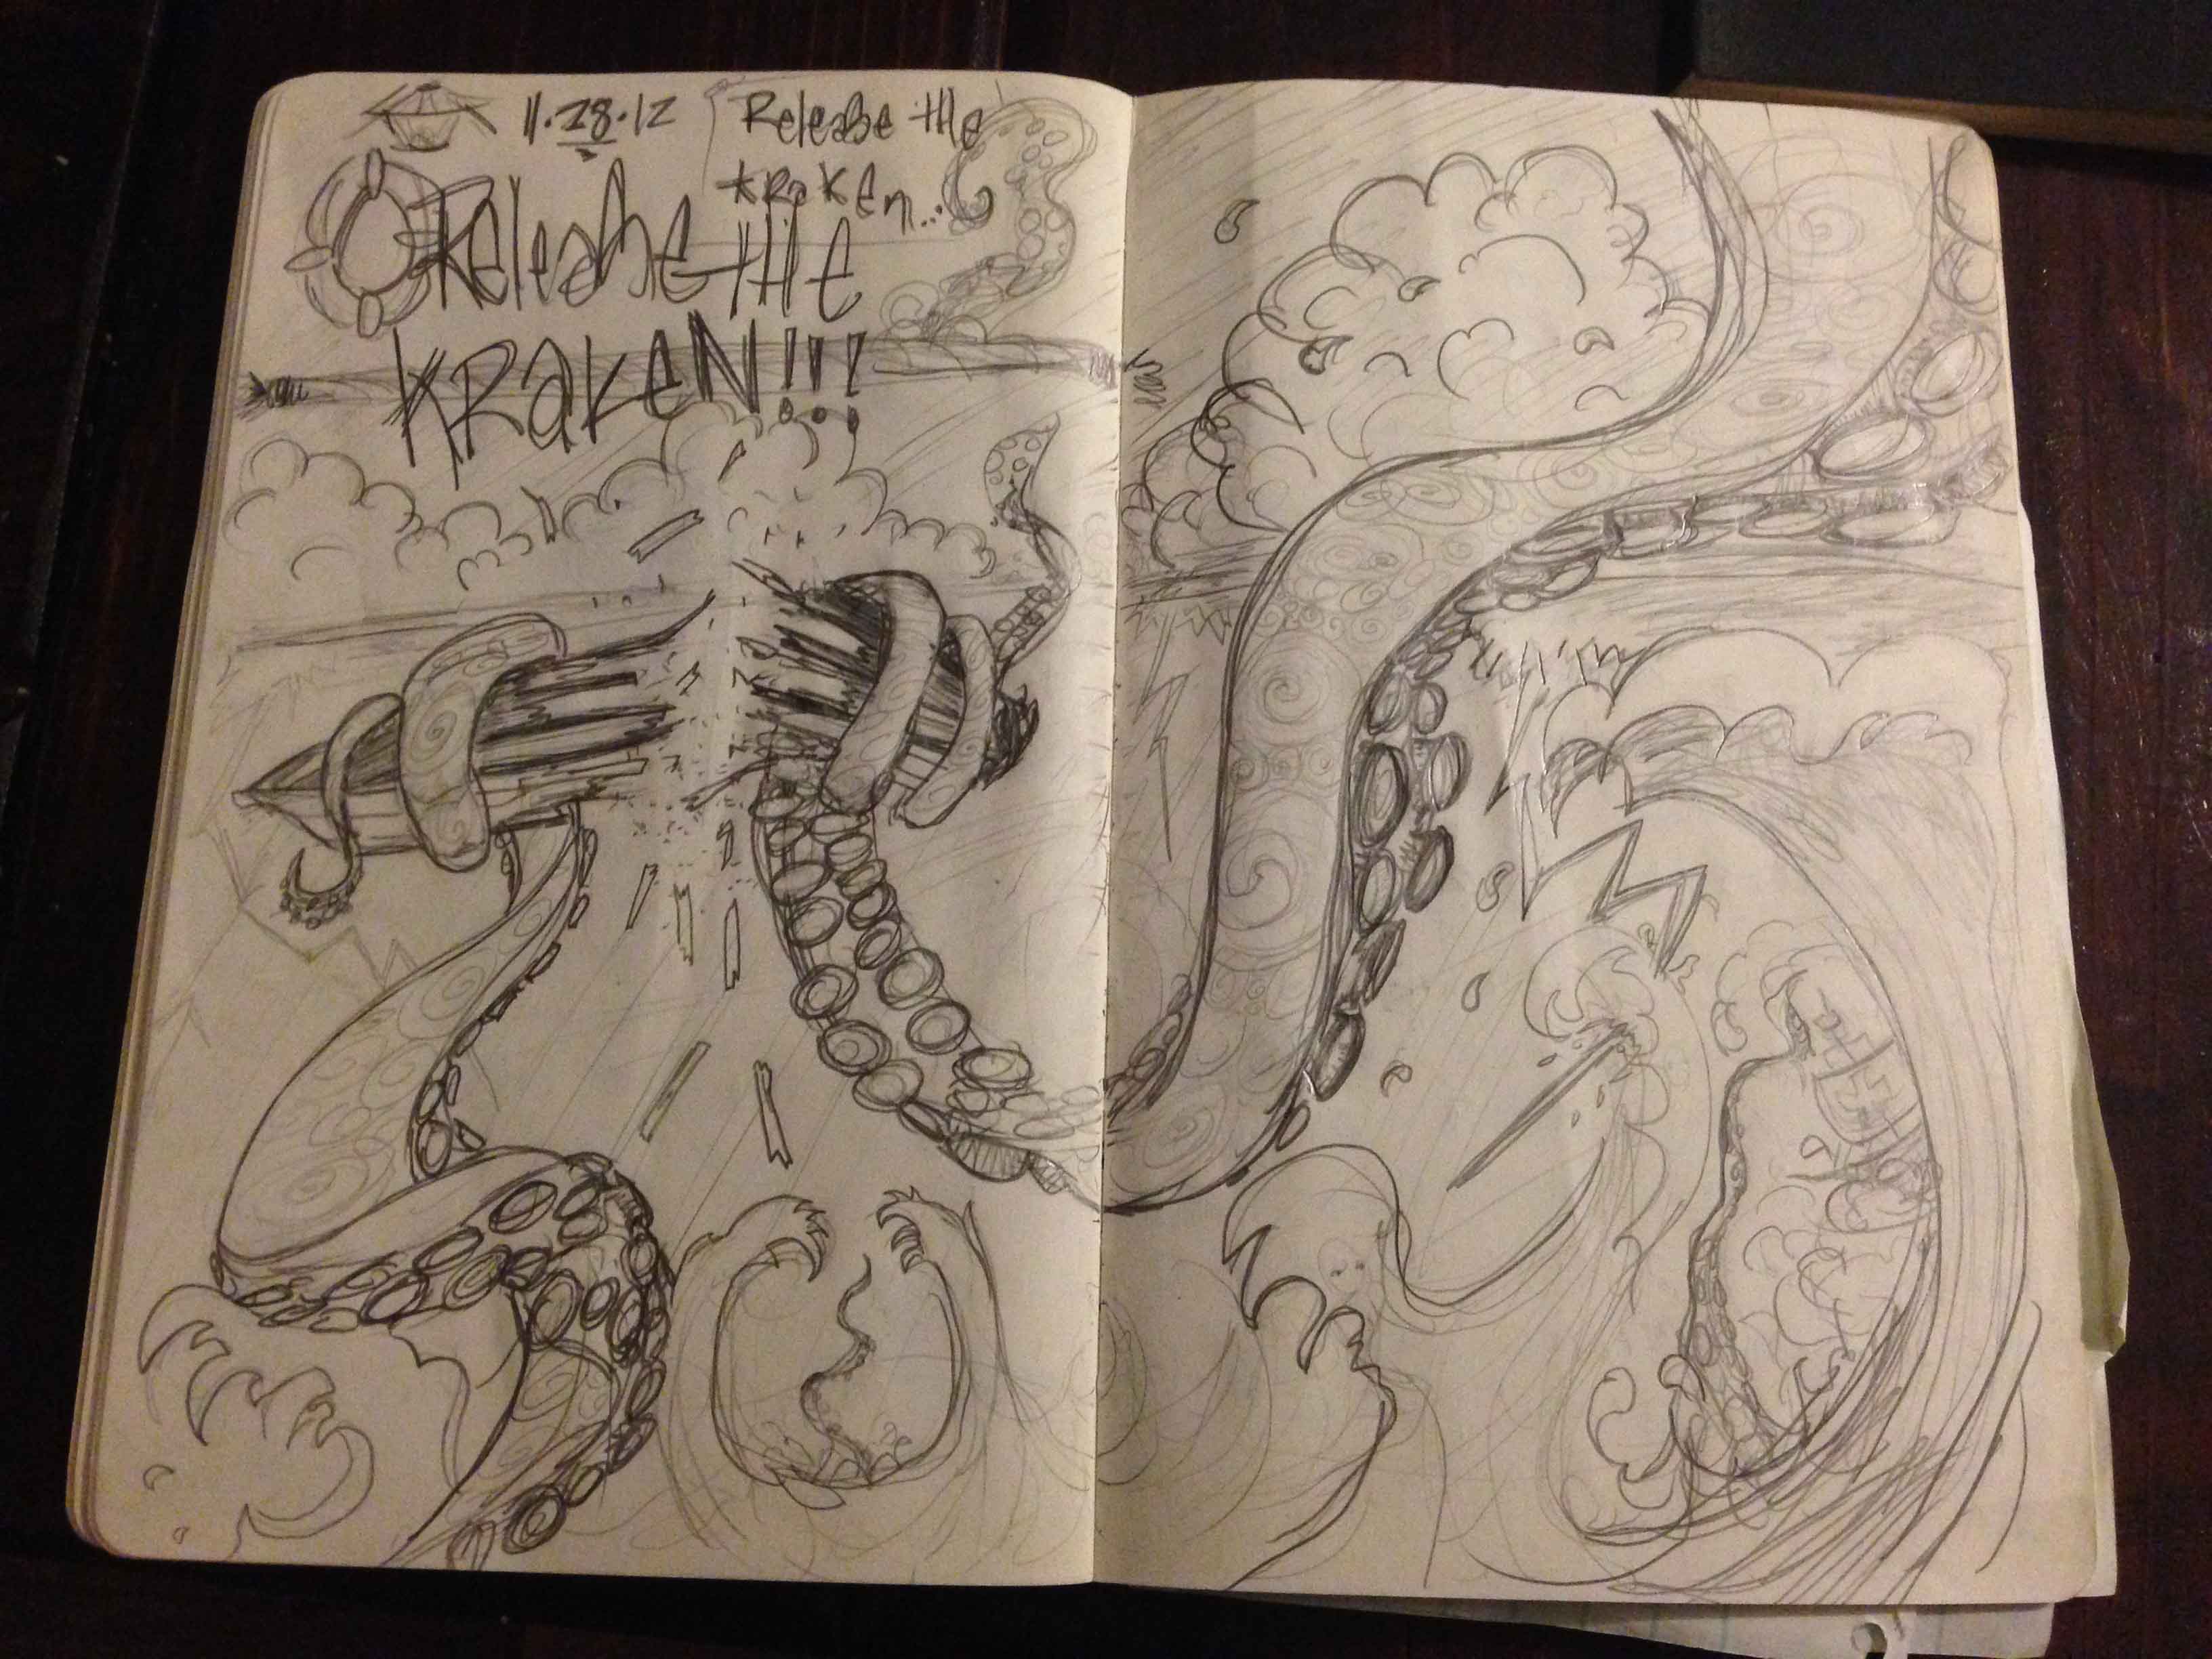 11.28.12
Release the
Kraken...
Release the
KRaKeN!!!